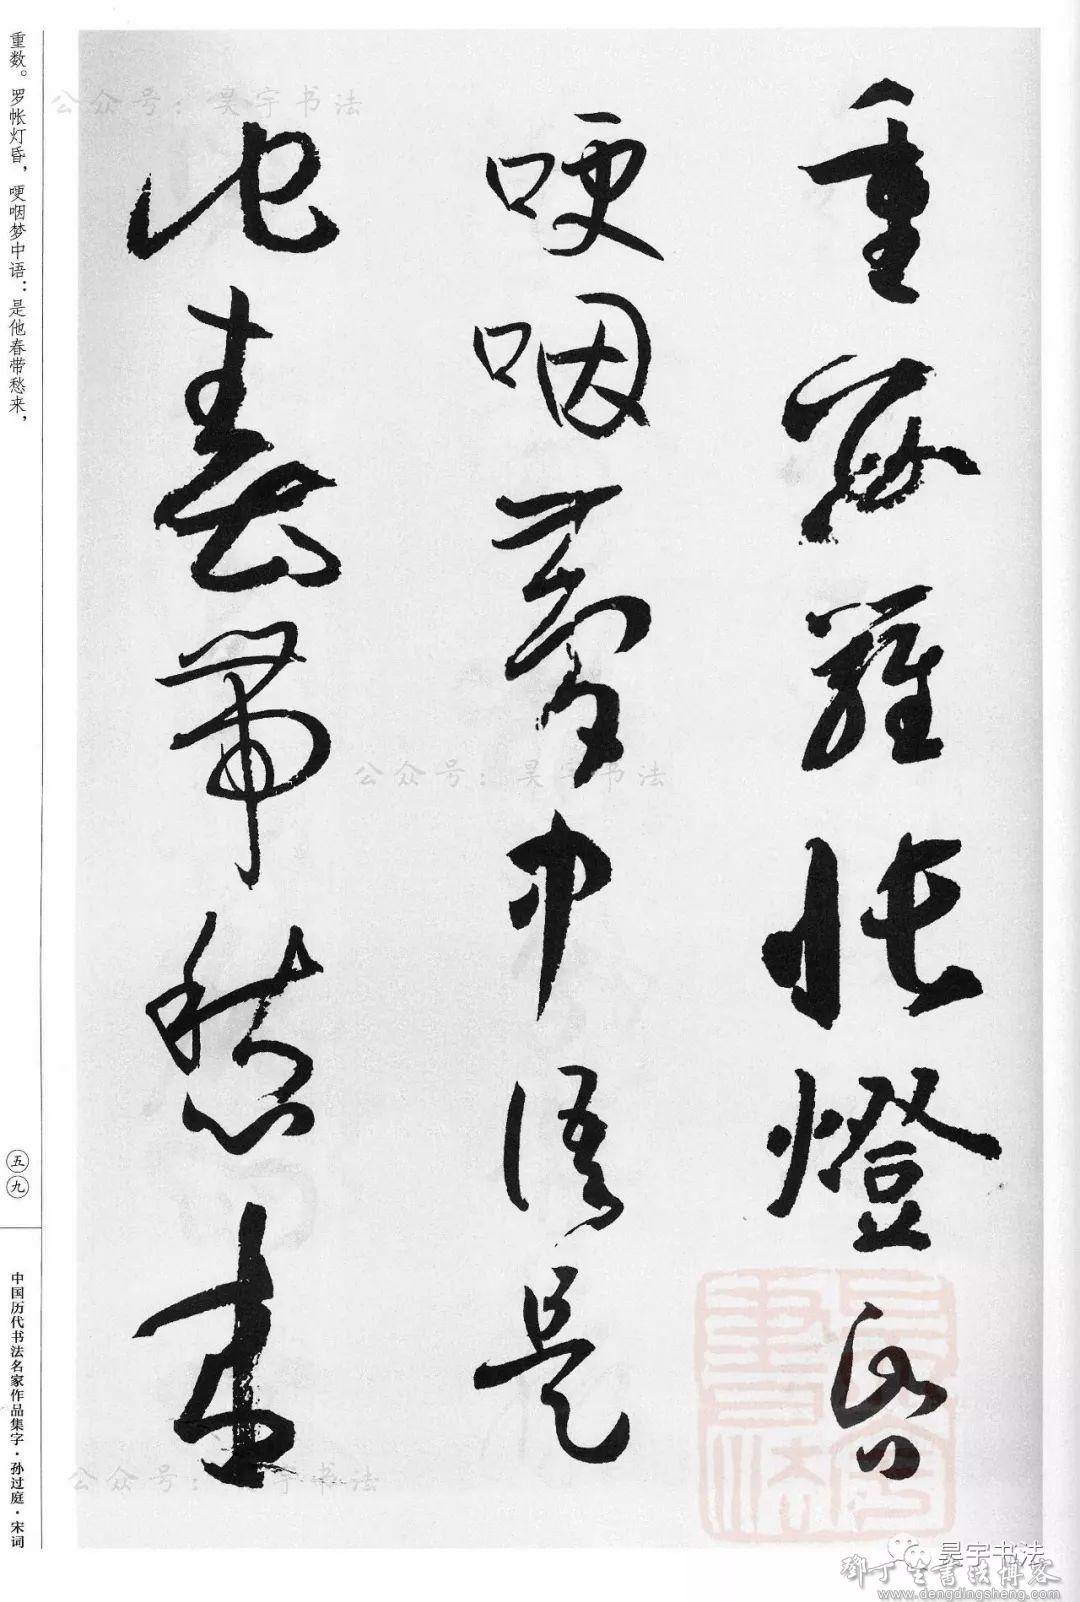 重数罗帐燈昏
哽咽夢中语是
他春带愁来
重数。罗帐灯昏，哽咽梦中语：是他春带愁来，
五九
中国历代书法名家作品集字·孙过庭·宋词
公众号：昊宇书法
公众号：昊宇书法
公众号：昊宇书法
昊宇書法
昊宇书法
鄧丁生書法博客
www.dengdingsheng.com